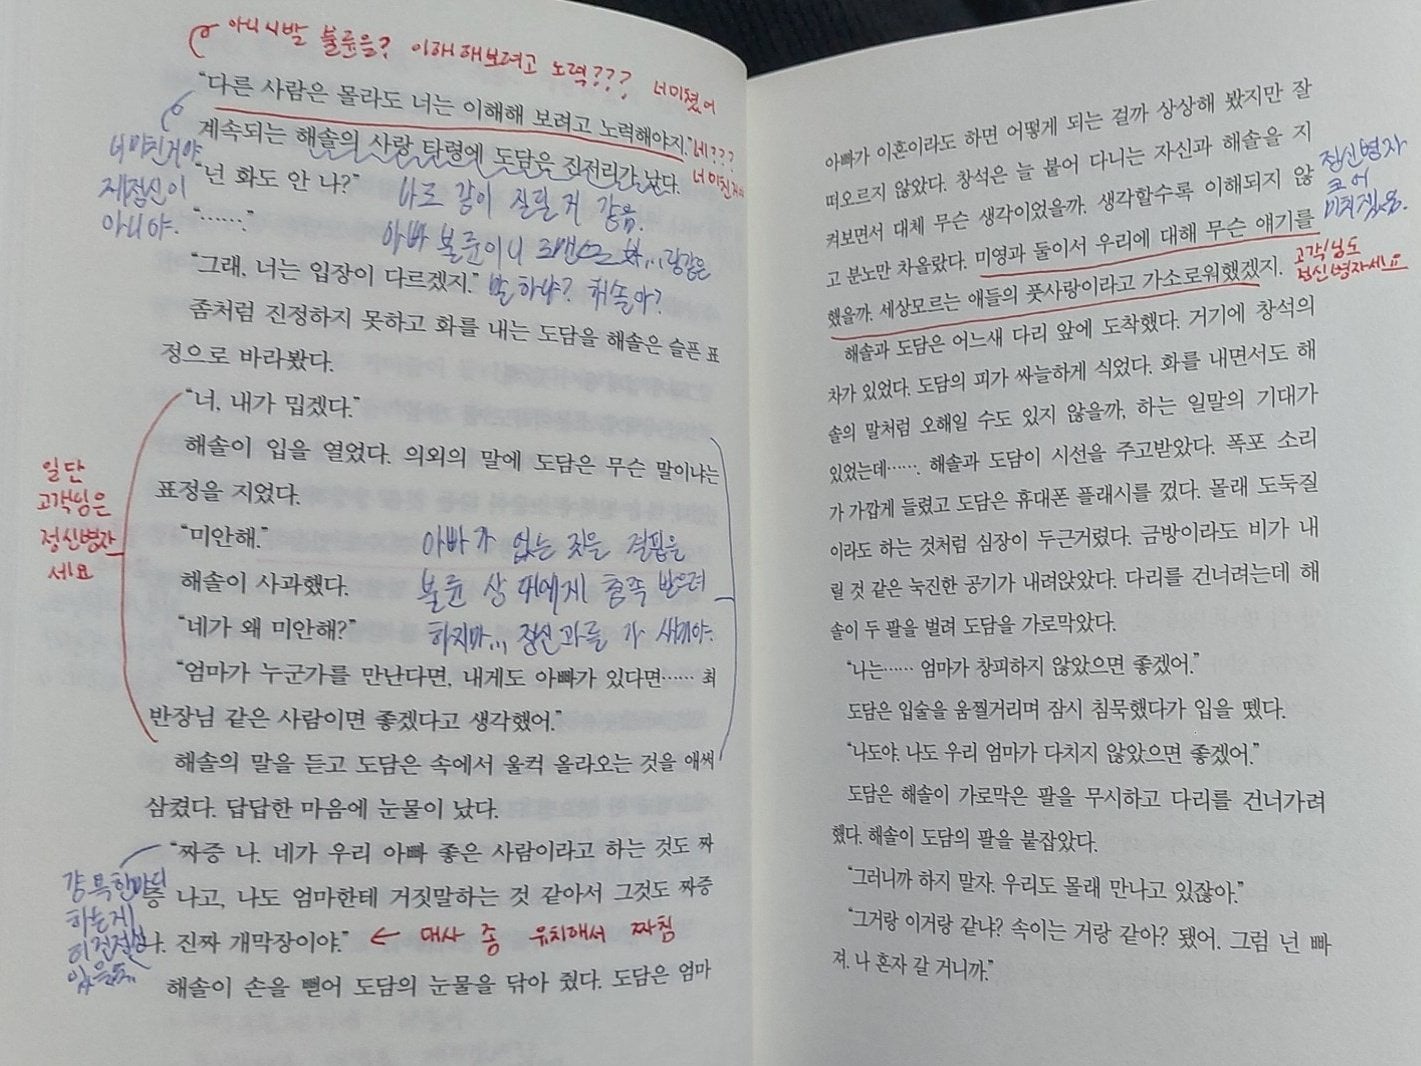 아니 시발 불륜을? 이해 해보려고 노력???, 너 미쳤어
“다른 사람은 몰라도 너는 이해해 보려고 노력해야지.” 네???
계속되는 해솔의 사랑 타령에 도담은 진저리가 났다. 너 미친거야
너 미친거야
제정신이
아니야.
“넌 화도 안 나?” 나도 같이 질릴 거 같음.
“…….” 아빠 불륜이니 로맨스
“그래, 너는 입장이 다르겠지.” 말 하냐? 해솔아?
좀처럼 진정하지 못하고 화를 내는 도담을 해솔은 슬픈 표
정으로 바라봤다.
“너, 내가 밉겠다.”
해솔이 입을 열었다. 의외의 말에 도담은 무슨 말이냐는
표정을 지었다.
일단
고객님은
정신병자
세요
“미안해.” 아빠가 없는 것을 결핍을
해솔이 사과했다. 불륜 상대에게 충족 받으려
“네가 왜 미안해?” 하지마... 정신과를 가
“엄마가 누군가를 만난다면, 내게도 아빠가 있다면…… 최
반장님 같은 사람이면 좋겠다고 생각했어.”
해솔의 말을 듣고 도담은 속에서 울컥 올라오는 것을 애써
삼켰다. 답답한 마음에 눈물이 났다.
“짜증 나. 네가 우리 아빠 좋은 사람이라고 하는 것도 짜
증 나고, 나도 엄마한테 거짓말하는 것 같아서 그것도 짜증
나. 진짜 개막장이야.” ← 대사 좀 유치해서 짜침
걍 욕한마디
하는게
해솔이 손을 뻗어 도담의 눈물을 닦아 줬다. 도담은 엄마
아빠가 이혼이라도 하면 어떻게 되는 걸까 상상해 봤지만 잘
떠오르지 않았다. 창석은 늘 붙어 다니는 자신과 해솔을 지
켜보면서 대체 무슨 생각이었을까. 생각할수록 이해되지 않
고 분노만 차올랐다. 미영과 둘이서 우리에 대해 무슨 얘기를
했을까. 세상모르는 애들의 풋사랑이라고 가소로워했겠지.
정신병자
고객님도
정신병자세요
해솔과 도담은 어느새 다리 앞에 도착했다. 거기에 창석의
차가 있었다. 도담의 피가 싸늘하게 식었다. 화를 내면서도 해
솔의 말처럼 오해일 수도 있지 않을까, 하는 일말의 기대가
있었는데……. 해솔과 도담이 시선을 주고받았다. 폭포 소리
가 가깝게 들렸고 도담은 휴대폰 플래시를 껐다. 몰래 도둑질
이라도 하는 것처럼 심장이 두근거렸다. 금방이라도 비가 내
릴 것 같은 눅진한 공기가 내려앉았다. 다리를 건너려는데 해
솔이 두 팔을 벌려 도담을 가로막았다.
“나는…… 엄마가 창피하지 않았으면 좋겠어.”
도담은 입술을 움찔거리며 잠시 침묵했다가 입을 뗐다.
“나도야. 나도 우리 엄마가 다치지 않았으면 좋겠어.”
도담은 해솔이 가로막은 팔을 무시하고 다리를 건너가려
했다. 해솔이 도담의 팔을 붙잡았다.
“그러니까 하지 말자. 우리도 몰래 만나고 있잖아.”
“그거랑 이거랑 같냐? 속이는 거랑 같아? 됐어. 그럼 넌 빠
져. 나 혼자 갈 거니까.”